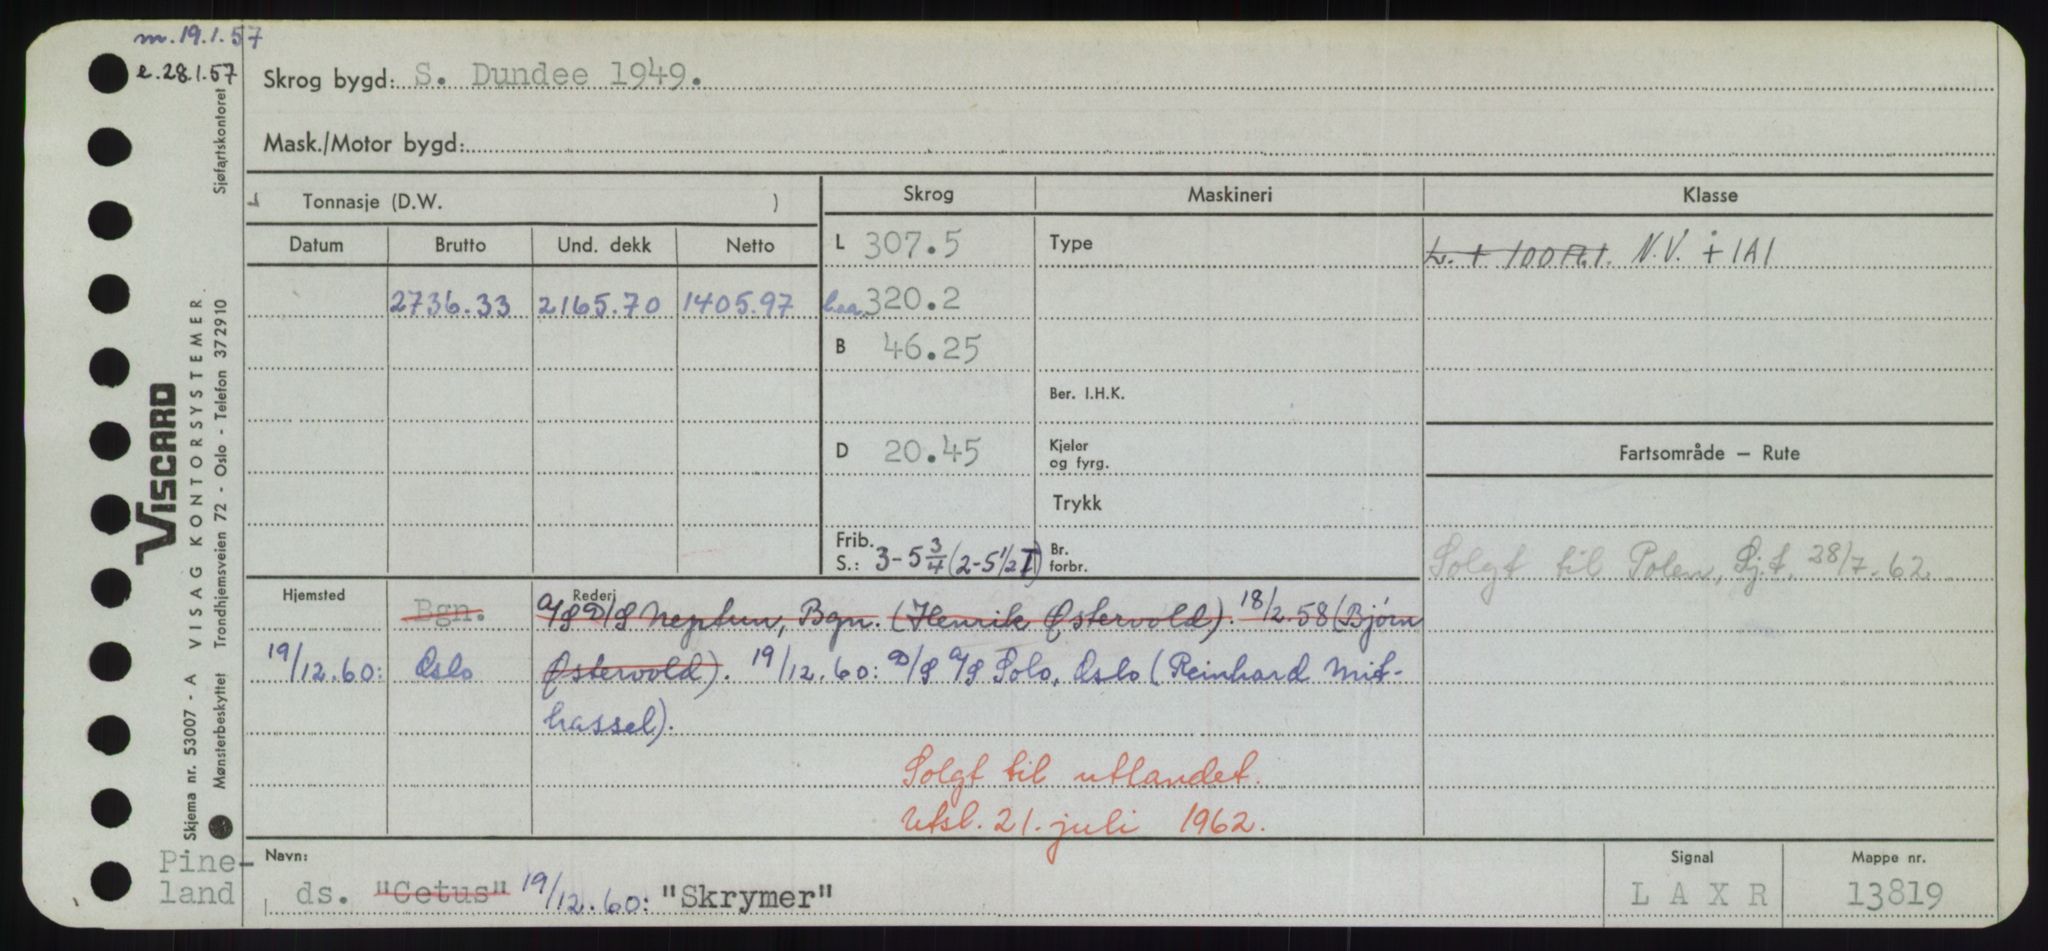 m. 19.1.57
e. 28.1.57
Skrog bygd: S. Dundee 1949.
Mask./Motor bygd:
Tonnasje (D.W. )
Datum Brutto Und. dekk Netto
2736.33 2165.70 1405.97
Skrog Maskineri Klasse
L 307.5 Type
L. + 100 A.1. N.V. + 1A1
Loa. 320.2
B 46.25
Ber. I.H.K.
D 20.45 Kjeler og fyrg.
Fartsområde — Rute
Trykk
Frib. S.: 3-5 3/4 (2-5 1/2 I) Br. forbr.
Solgt til Polen, Sj.t. 28/7-62
Hjemsted Rederi
Bgn. A/S D/S Neptun, Bgn. (Henrik Østervold). 18/2.58 (Bjørn
19/12.60: Oslo Østervold). 19/12.60: D/S A/S Solo, Oslo (Reinhard Mit-
hassel).
Solgt til utlandet.
Utsl. 21. juli 1962.
Navn: Signal Mappe nr.
Pine-
land ds. "Cetus" 19/12.60: "Skrymer" L A X R 13819
Sjøfartskontoret
VISCARD
VISAG KONTORSYSTEMER.
Skjema nr. 53007 - A
Mønsterbeskyttet Trondhjemsveien 72 - Oslo - Telefon 372910